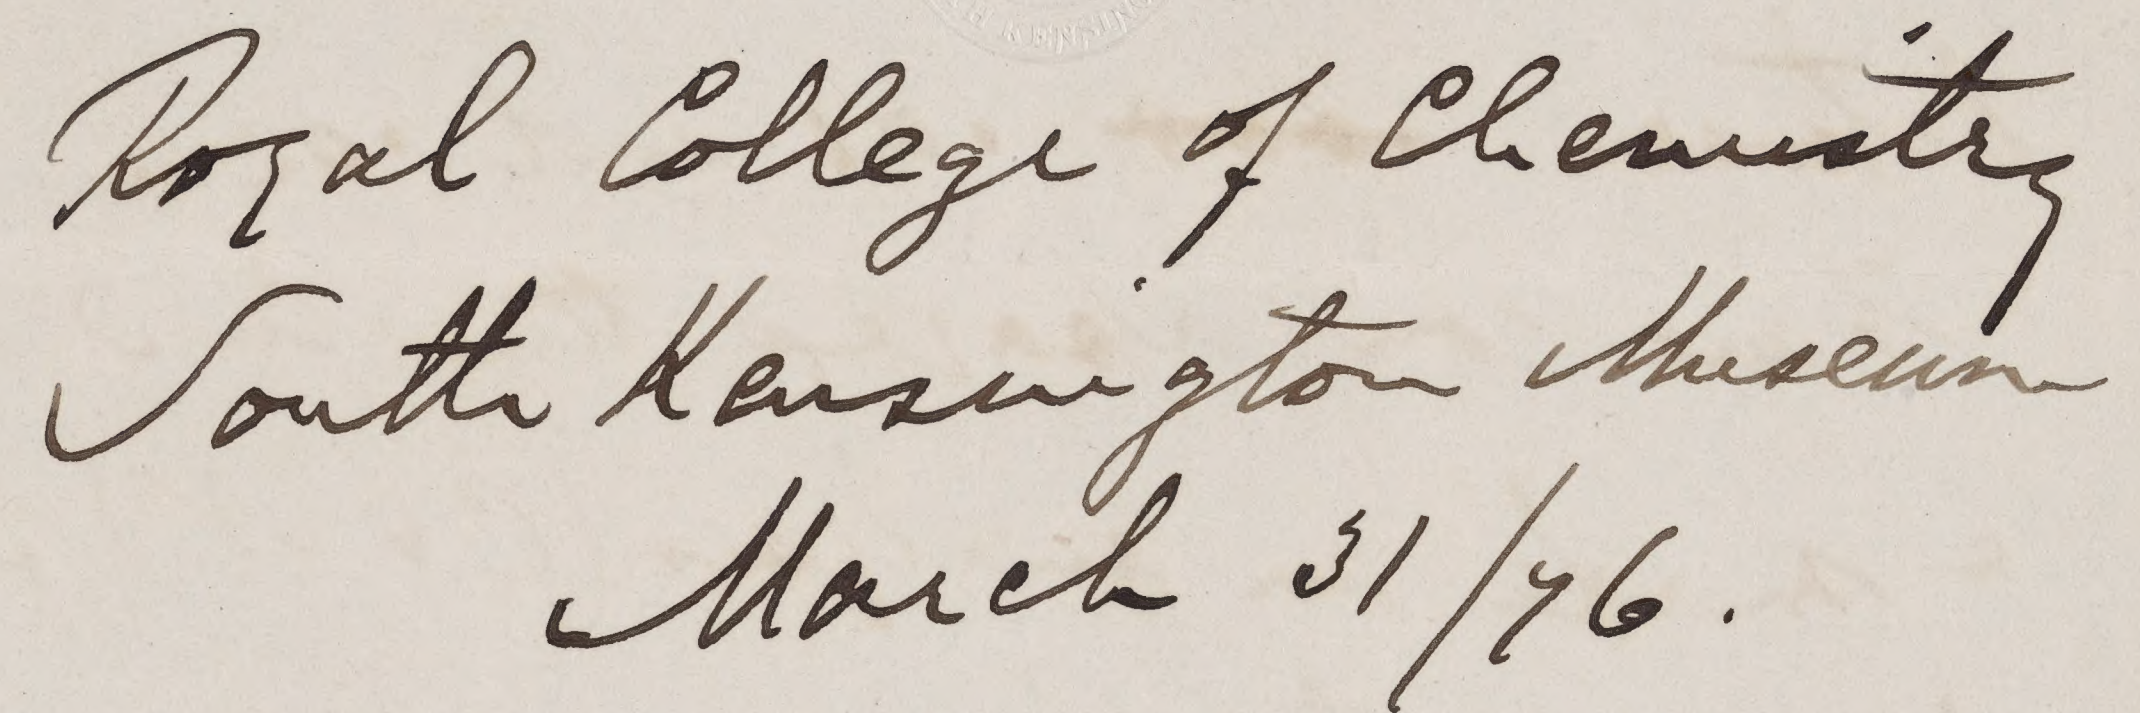 Royal College of Chemistry
South Kensington Museum
March 31/76.